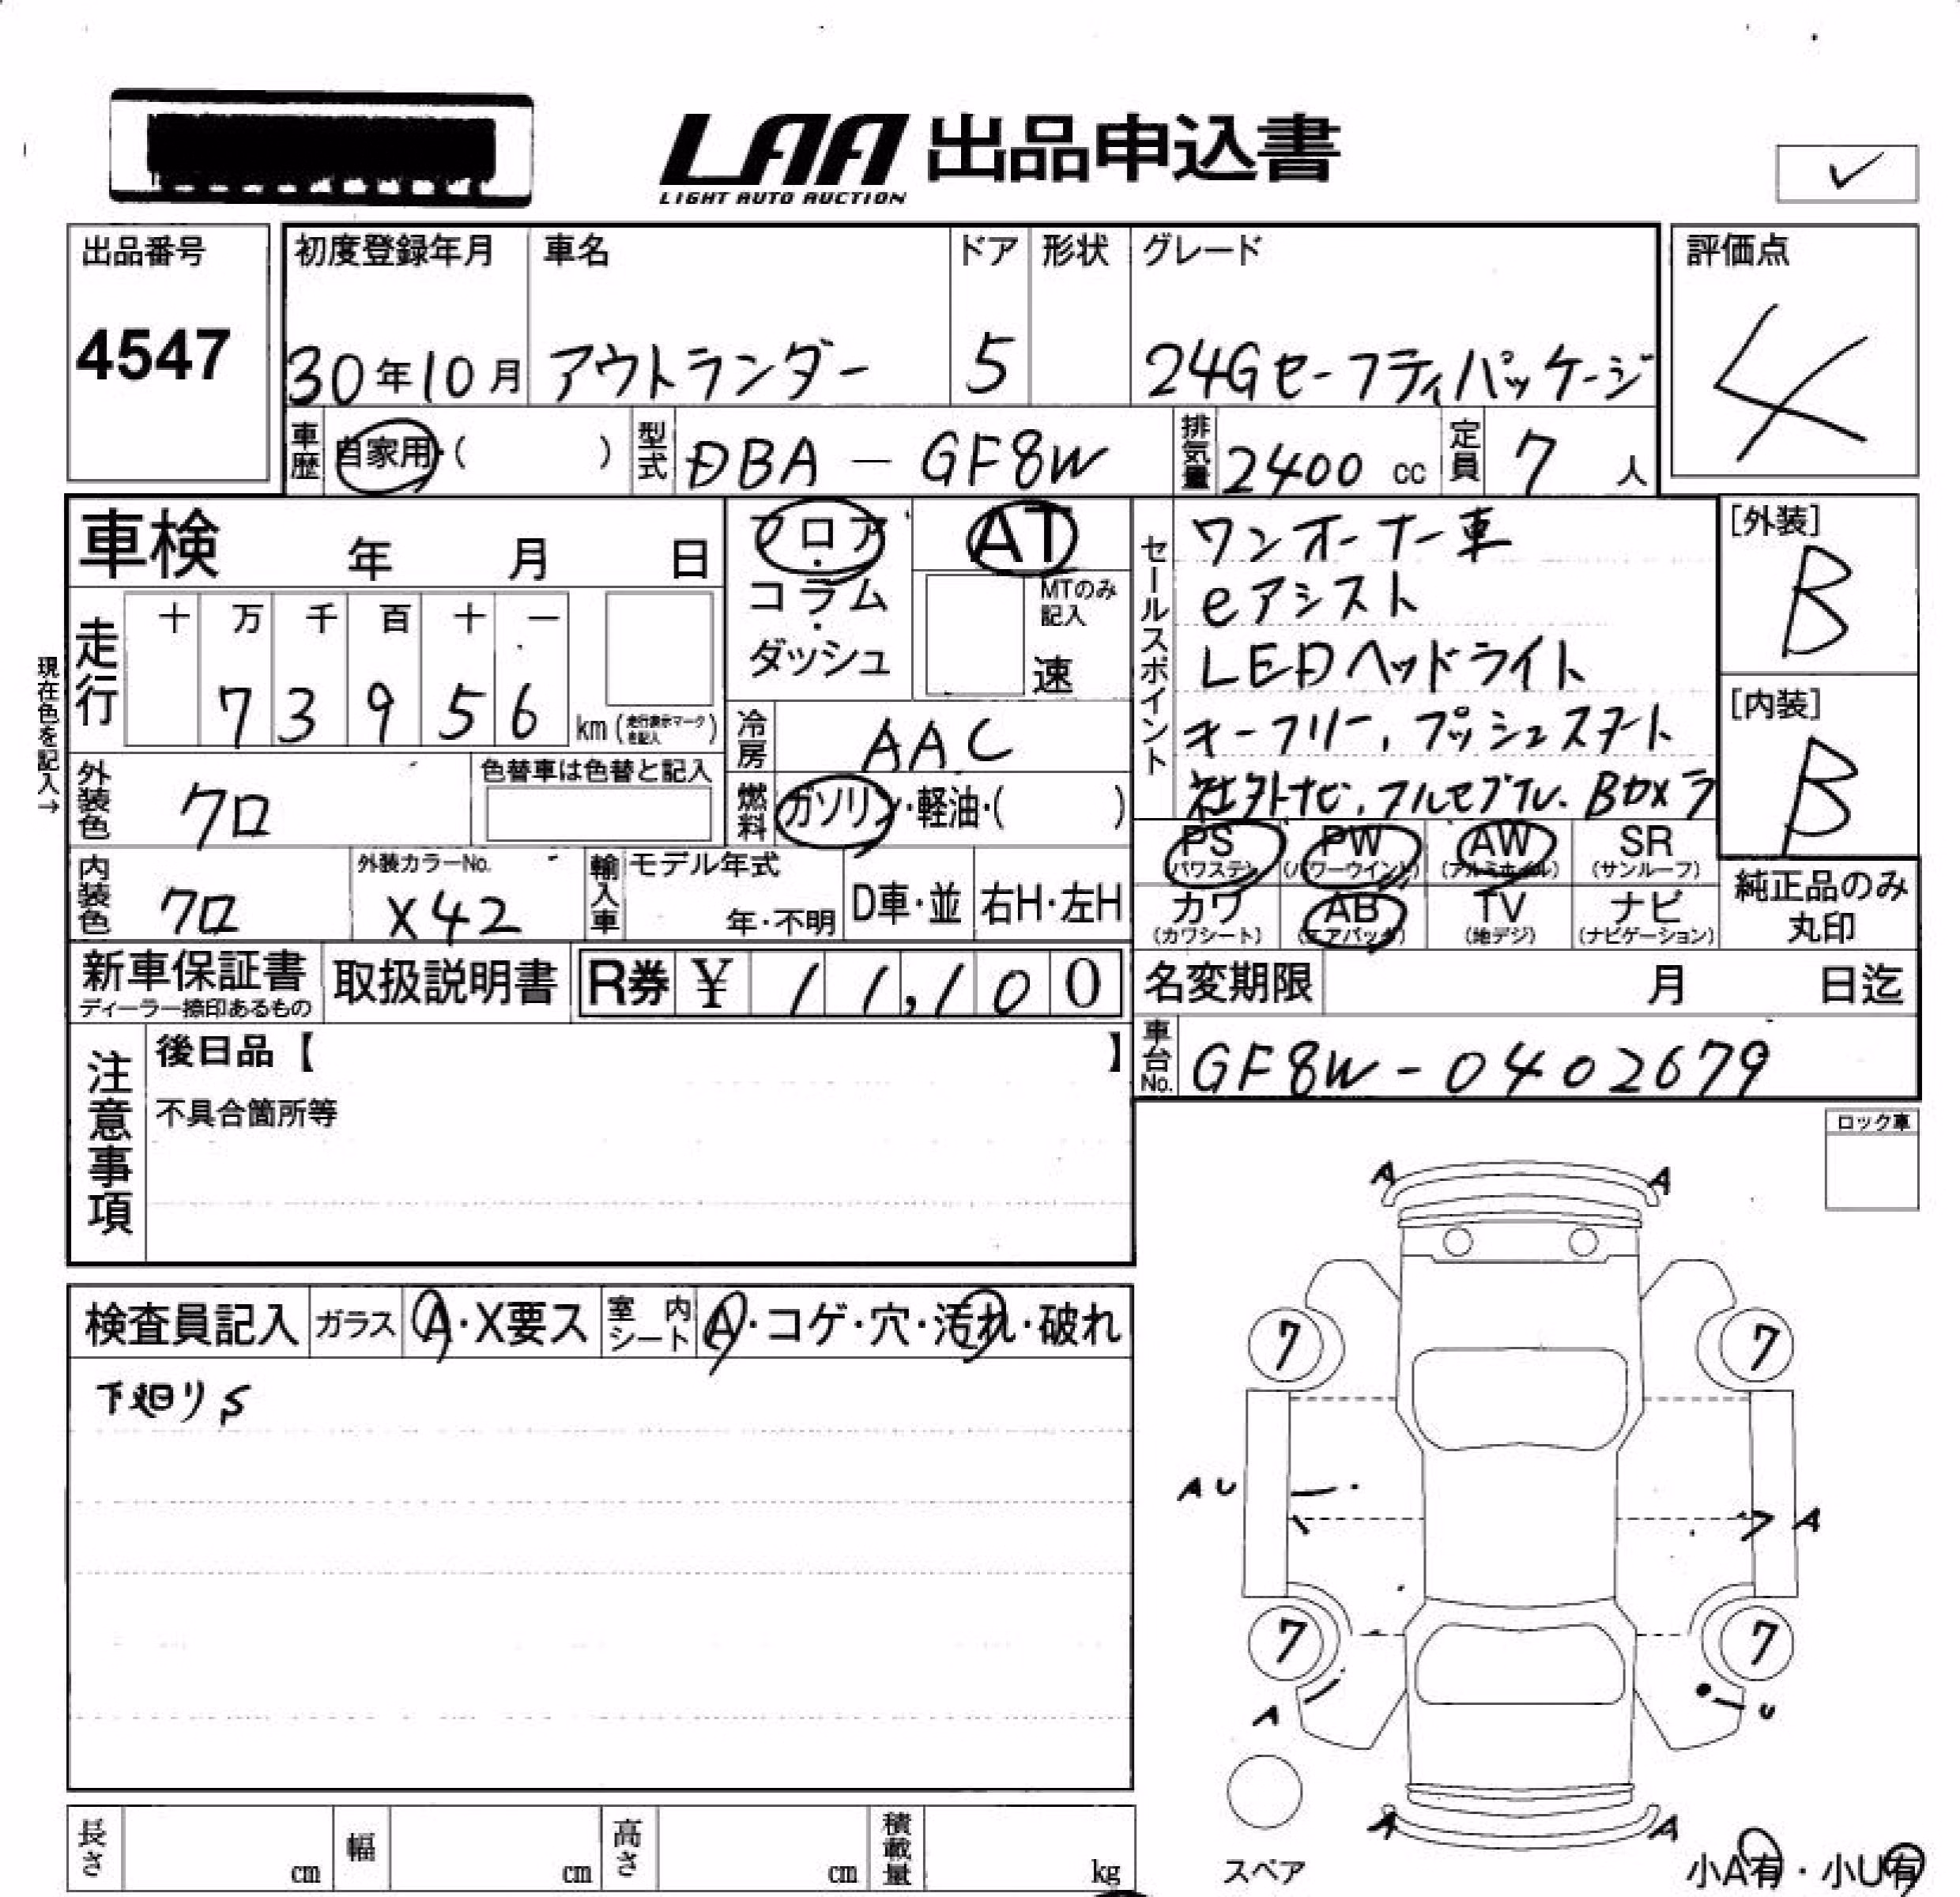 LAA 出品申込書
LIGHT AUTO AUCTION
✓
出品番号
4547
初度登録年月
30年10月
車名
アウトランダー
ドア
5
形状
グレード
24Gセーフティパッケージ
評価点
4
車歴 自家用・( )
型式 DBA-GF8W
排気量 2400 cc
定員 7 人
車検 年 月 日
フロア・コラム・ダッシュ
AT
MTのみ記入
速
セールスポイント
ワンオーナー車
eアシスト
LEDヘッドライト
キーフリー,プッシュスタート
社外ナビ,フルセグTV.Bカメラ
[外装]
B
[内装]
B
現在色を記入→
走行
十 万 千 百 十 一
7 3 9 5 6
km (走行表示マークを記入)
冷房 AAC
燃料 ガソリン・軽油・( )
外装色 クロ
色替車は色替と記入
内装色 クロ
外装カラーNo.
X42
輸入車
モデル年式
年・不明
D車・並
右H・左H
PS (パワステ)
PW (パワーウインド)
AW (アルミホイル)
SR (サンルーフ)
カワ (カワシート)
AB (エアバック)
TV (地デジ)
ナビ (ナビゲーション)
純正品のみ
丸印
新車保証書
ディーラー捺印あるもの
取扱説明書
R券 ¥ 11,100
名変期限 月 日迄
車台No. GF8W-0402679
注意事項
後日品【 】
不具合箇所等
ロック車
検査員記入
ガラス A・X要ス
室内シート A・コゲ・穴・汚れ・破れ
下廻りS
A A
7 7
AU
A
7 7
A U
A A
スペア
小A有・小U有
長さ cm
幅 cm
高さ cm
積載量 kg